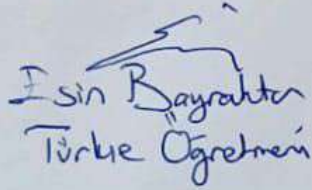 Isin Bayraktar
Türkçe Öğretmeni